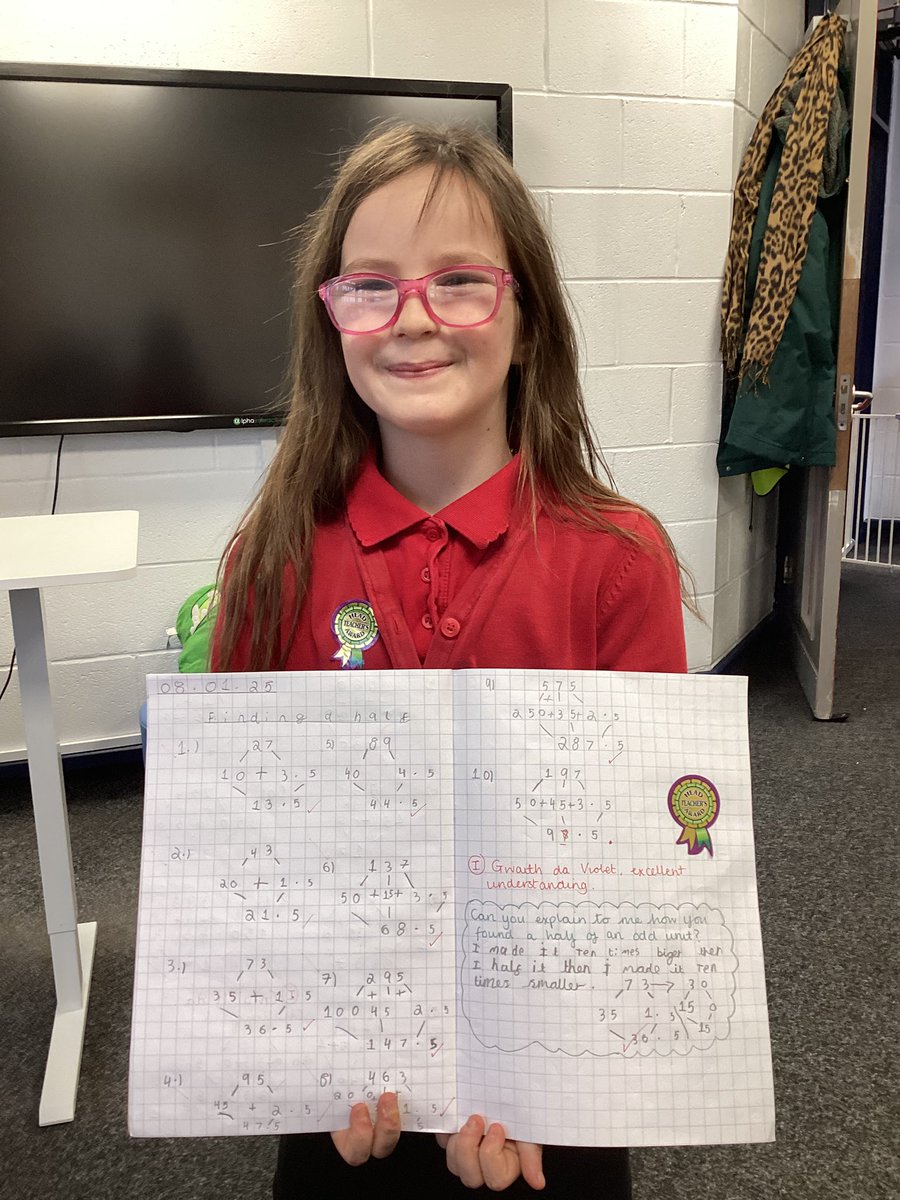 alpha
HEAD
TEACHER'S
AWARD
08.01.25
Finding a half
1.) 27
10 + 3.5
13.5
2.) 43
20 + 1.5
21.5
3.) 73
35 + 1.5
36.5
4.) 95
45 + 2.5
47.5
5) 89
40 4.5
44.5
6) 137
50 + 15 + 3.5
68.5
7) 295
+ 1 +
100 45 2.5
147.5
8) 463
1.5
9) 575
250+35+2.5
287.5
10) 197
50+45+3.5
98.5
HEAD
TEACHER'S
AWARD
I Gwaith da Violet, excellent
understanding.
Can you explain to me how you
found a half of an odd unit?
I made it ten times biger then
I half it then I made it ten
times smaller. 73 → 30
35 1.5 15 0
36.5 15